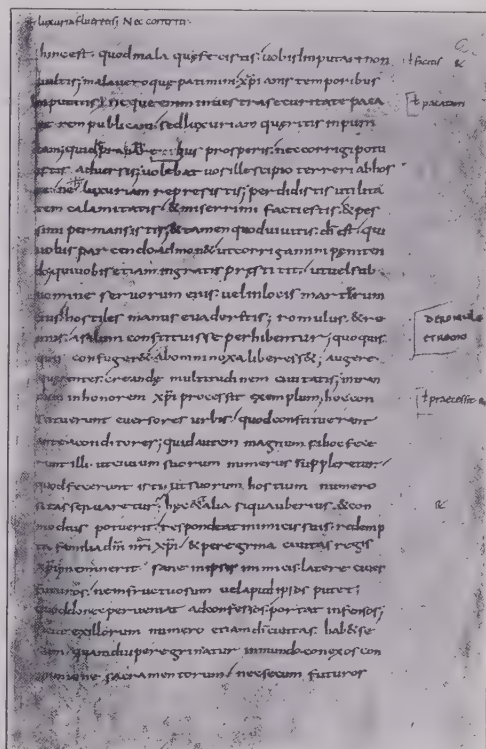 luxuria fluertis; Nec correcti
hinc est quod mala quę fecistis uobis Imputari non
uultis; mala uero quę patimini xp̄ianis temporibus
Imputatis; neque enim in uestra securitate paca
tam rem publicam sed luxuriam quęritis impuni
tam; qui rebus prosperis nec corrigi potu
istis aduersis; uolebat uos ille scipio terreri ab hos
te ne In luxuriam repressistis; perdidistis utilita
tem calamitatis & miserrimi facti estis & pes
simi permansistis; & tamen quod uiuitis dī est qui
uobis parcendo admon& ut corrigamini pęniten
do; qui uobis etiam ingratis pręstitit ut uel sub
nomine seruorum eius uel in locis martirum
eius hostiles manus euaderetis; romulus & re
mus asilum constituisse perhibentur quo quis
quis confuger& ab omni noxa liber ess&; augere
quęrentes creandę multitudinem ciuitatis; miran
dum in honorem xp̄i processit exemplum; hoc con
stituerunt euersores urbis quod constituerant
antea conditores; quid autem magnum si hoc fece
runt illi ut ciuium suorum numerus suppleretur
quod fecerunt isti ut suorum hostium numero
sitas seruaretur; hęc & alia si qua uberius & con
modius potuerit respondeat inimicis suis redemp
ta familia dn̄i nr̄i xp̄i & peregrina ciuitas regis
xp̄i; meminerit sane in ipsis inimicis latere ciues
futuros ne infructuosum uel apud ipsos putet
quod donec perueniat ad confessos portat infensos;
sicut ex illorum numero etiam dī ciuitas hab& se
cum quamdiu peregrinatur in mundo conexos con
munione sacramentorum nec secum futuros
ł factis
&
ł pacatam
DE ROMULO
ET REMO
ł praecessit